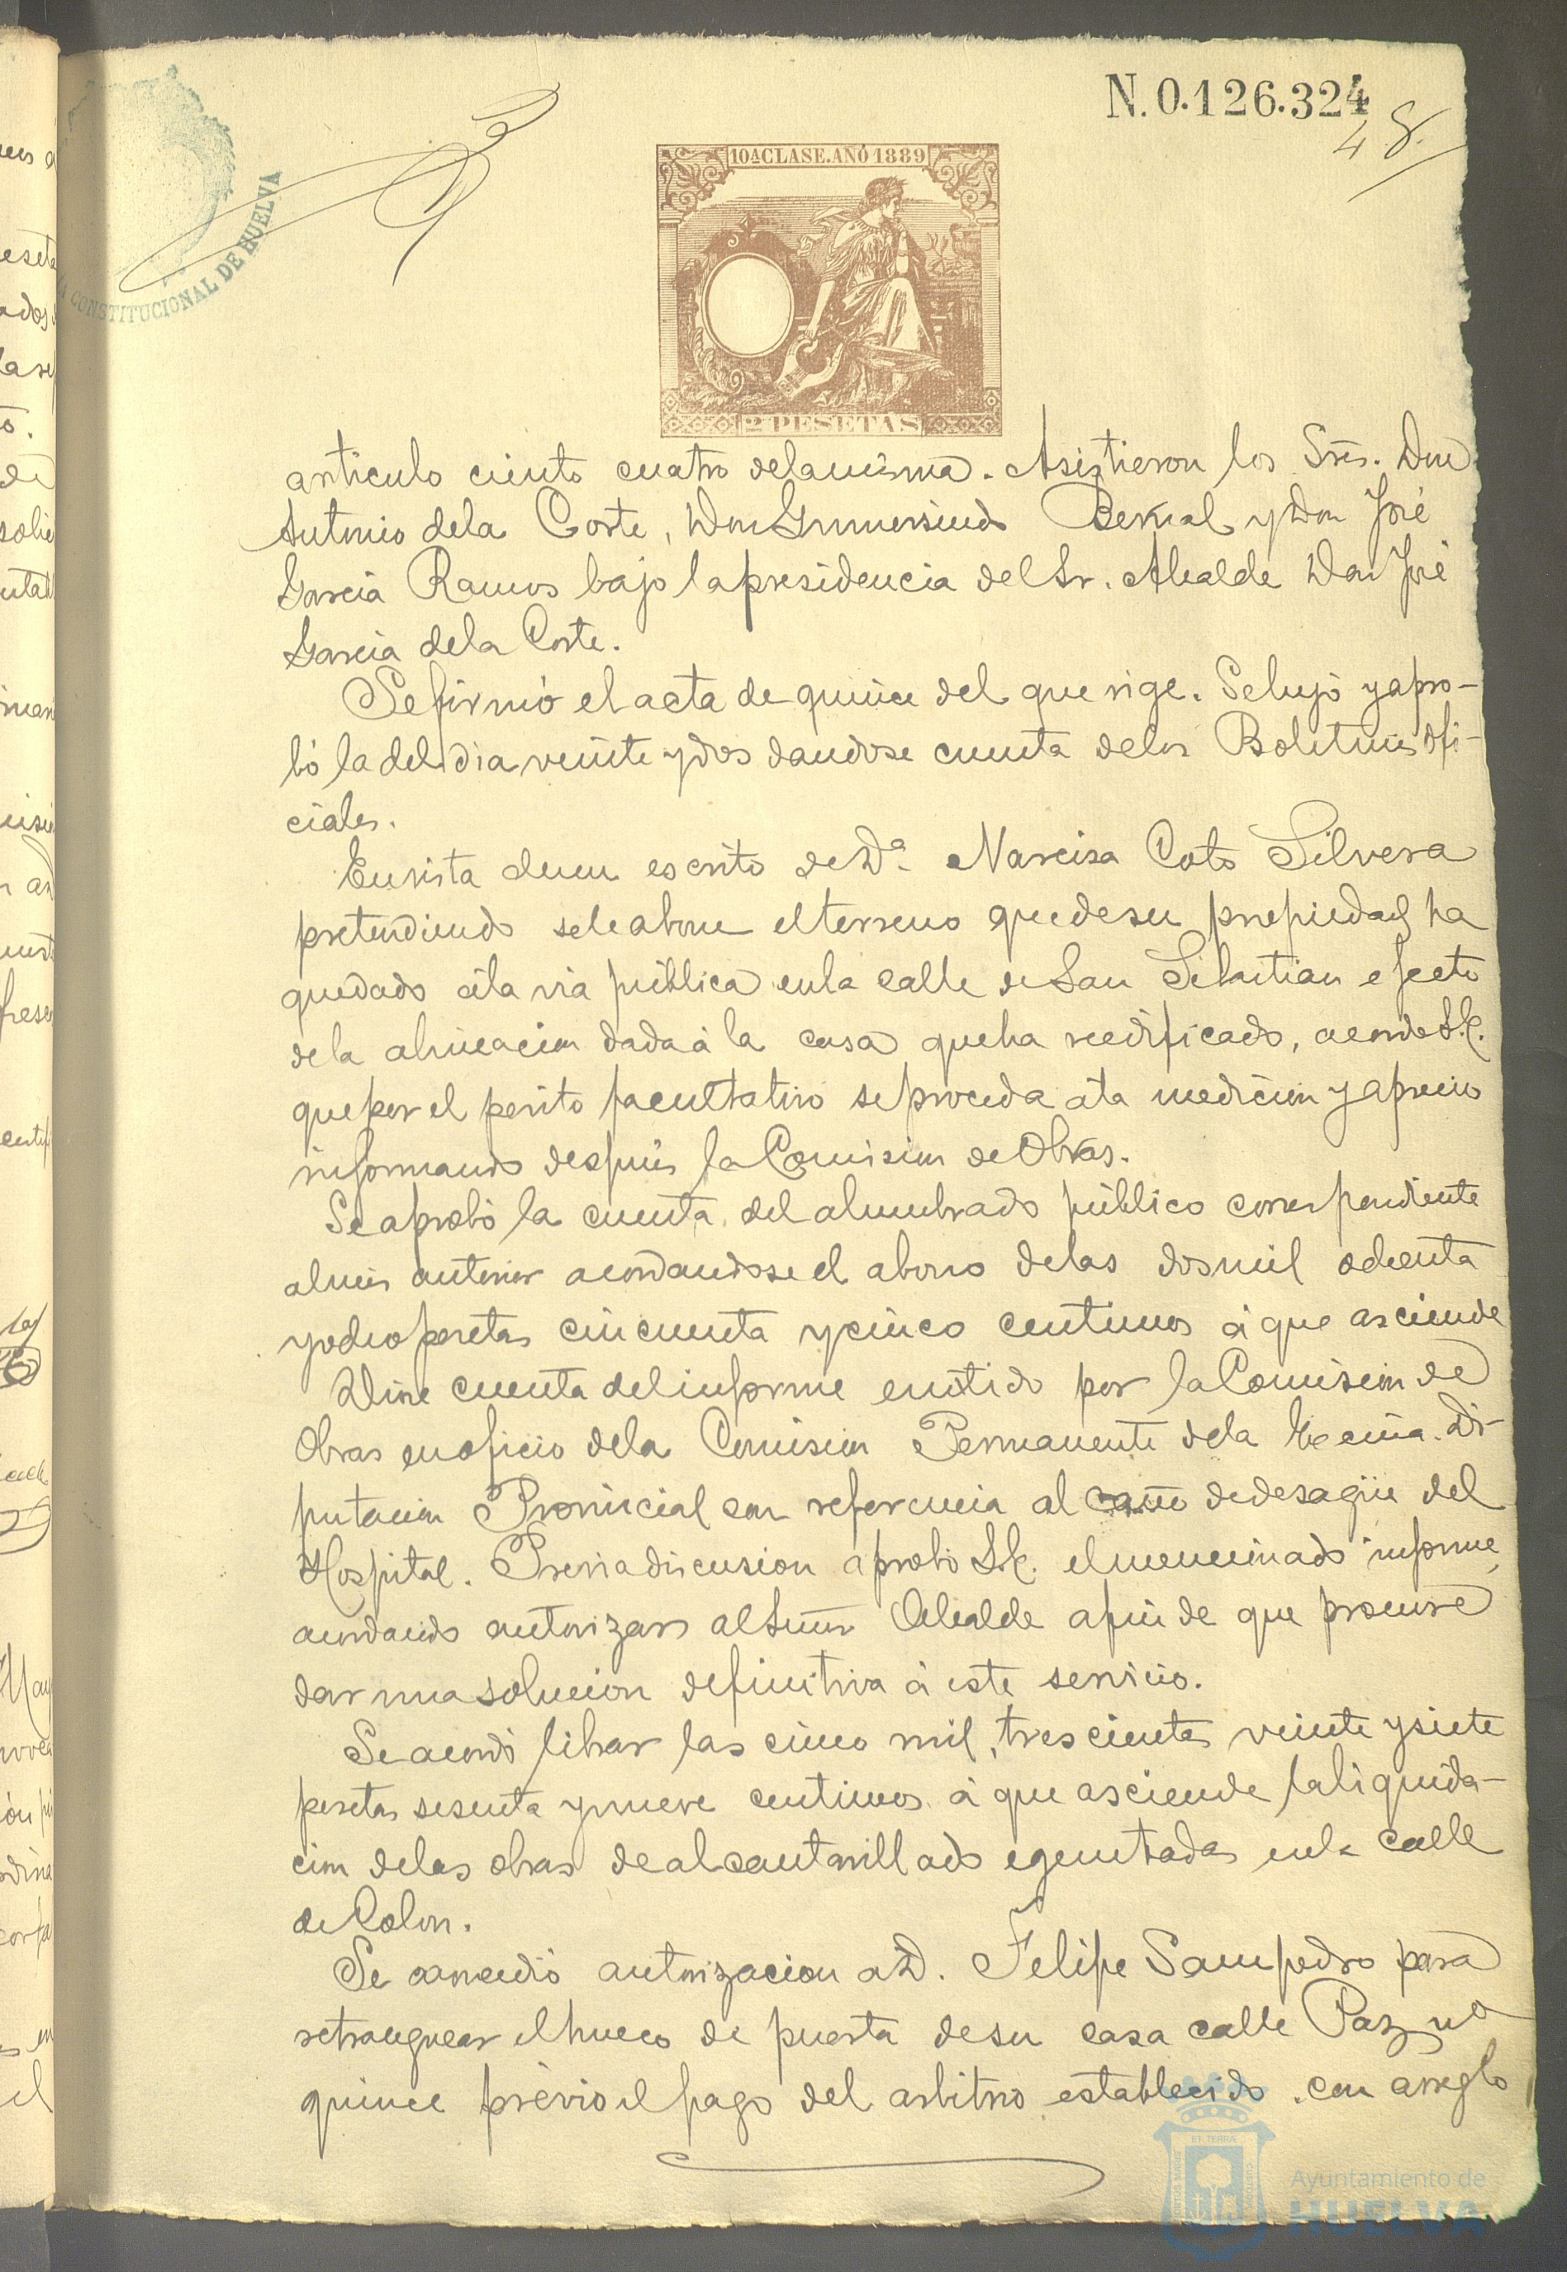 N. 0.126.324
48.
10ª CLASE. AÑO 1889
2 PESETAS
CONSTITUCIONAL DE HUELVA
articulo ciento cuatro dela misma. Asistieron los Sres. Don
Antonio dela Corte, Don Gumersindo Bernal y Don José
Garcia Ramos bajo la presidencia del Sr. Alcalde Don José
Garcia dela Corte.
Se firmó el acta de quince del que rige. Se leyó y apro-
bó la del dia veinte y dos dandose cuenta delos Boletines Ofi-
ciales.
En vista de un escrito de Dª. Narcisa Coto Silvera
pretendiendo sele abone el terreno que de su propiedad ha
quedado á la via pública en la calle de San Sebastian efecto
de la alineacion dada á la casa que ha reedificado, acordó S.E.
que por el perito facultativo se proceda á la medicion y aprecio
informando después la Comision de Obras.
Se aprobó la cuenta del alumbrado público correspondiente
al mes anterior acordandose el abono delas dos mil ochenta
y ocho pesetas cincuenta y cinco centimos á que asciende
Dióse cuenta del informe emitido por la Comision de
Obras en oficio dela Comision Permanente dela Excma. Di-
putacion Provincial con referencia al caño de desagüe del
Hospital. Previa discusion aprobó S.E. el mencionado informe,
acordando autorizar al Señor Alcalde afin de que procure
dar una solucion definitiva á este servicio.
Se acordó librar las cinco mil, trescientas veinte y siete
pesetas sesenta y nueve centimos á que asciende la liquida-
cion delas obras de alcantarillado egecutadas en la calle
de Colon.
Se concedió autorizacion a D. Felipe Sampedro para
retranquear el hueco de puerta de su casa calle Paz nº
quince prévio el pago del arbitrio establecido con arreglo
Ayuntamiento de
HUELVA